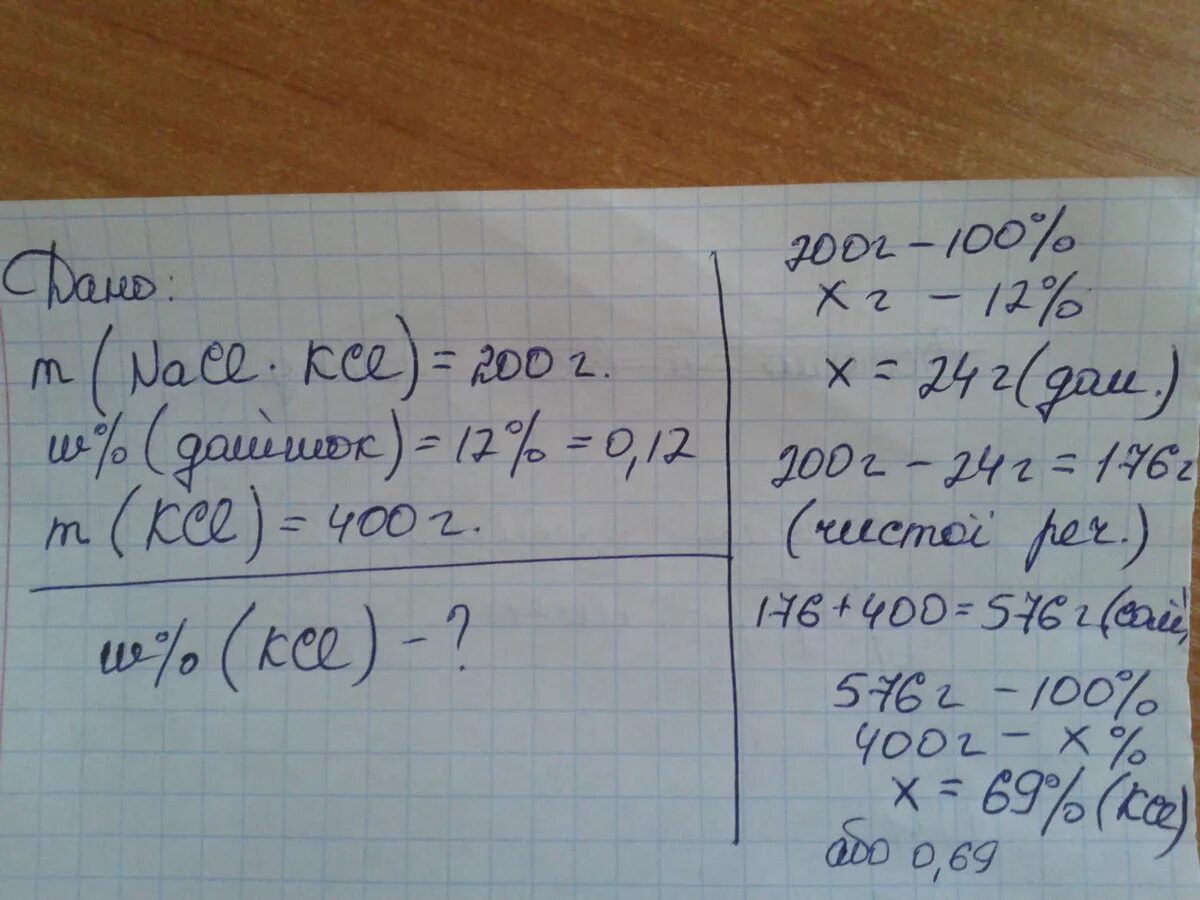 Дано:
m (NaCl · KCl) = 200 г.
w% (домішок) = 12% = 0,12
m (KCl) = 400 г.
w% (KCl) - ?
200г - 100%
x г - 12%
x = 24 г (дом.)
200г - 24 г = 176 г
(чистої реч.)
176 + 400 = 576 г (сол
576 г - 100%
400 г - x %
x = 69% (KCl)
або 0,69